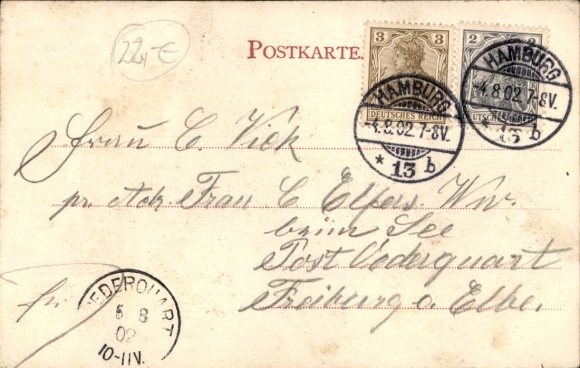 22,-€
POSTKARTE.
3 3
DEUTSCHES REICH
2
DEUTSCHES
HAMBURG
-4.8.02.7-8V.
* 13 b
HAMBURG
-4.8.02.7-8V.
* 13 b
Frau C. Vick
pr. Adr. Frau C Elfers Ww.
beim See
Post Oederquart
Freiburg a. Elbe.
OEDERQUART
5 8
02
10-11V.